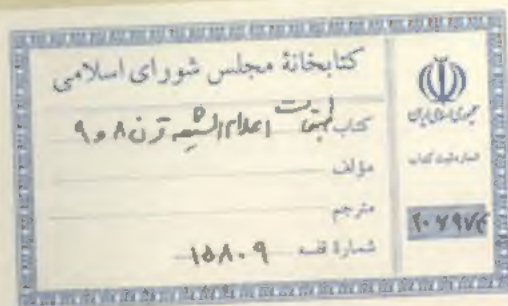 کتابخانهٔ مجلس شورای اسلامی
کتاب طبقات اعلام الشیعه قرن ۸ و ۹
مؤلف
مترجم
شمارهٔ قفسه ۱۵۸۰۹
جمهوری اسلامی ایران
شماره ثبت کتاب